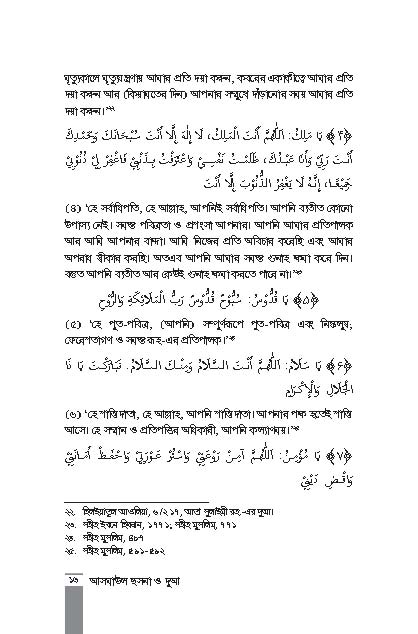 মৃত্যুকালে মৃত্যুযন্ত্রণায় আমার প্রতি দয়া করুন, কবরের একাকীত্বে আমার প্রতি
দয়া করুন আর (কিয়ামতের দিন) আপনার সম্মুখে দাঁড়ানোর সময় আমার প্রতি
দয়া করুন।’²²
﴿٤﴾ يَا مَلِكُ: اَللّٰهُمَّ أَنْتَ الْمَلِكُ، لَا إِلٰهَ إِلَّا أَنْتَ سُبْحَانَكَ وَبِحَمْدِكَ
أَنْتَ رَبِّيْ وَأَنَا عَبْدُكَ، ظَلَمْتُ نَفْسِيْ وَاعْتَرَفْتُ بِذَنْبِيْ فَاغْفِرْ لِيْ ذُنُوْبِيْ
جَمِيْعًا، إِنَّهُ لَا يَغْفِرُ الذُّنُوْبَ إِلَّا أَنْتَ
(৪) ‘হে সর্বাধিপতি, হে আল্লাহ, আপনিই সর্বাধিপতি। আপনি ব্যতীত কোনো
উপাস্য নেই। সমস্ত পবিত্রতা ও প্রশংসা আপনার। আপনি আমার প্রতিপালক
আর আমি আপনার বান্দা। আমি নিজের প্রতি অবিচার করেছি এবং আমার
অপরাধ স্বীকার করছি। অতএব আপনি আমার সমস্ত গুনাহ ক্ষমা করে দিন।
বস্তুত আপনি ব্যতীত আর কেউই গুনাহ ক্ষমা করতে পারে না।’²³
﴿٥﴾ يَا قُدُّوْسُ: سُبُّوْحٌ قُدُّوْسٌ رَبُّ الْمَلَائِكَةِ وَالرُّوْحِ
(৫) ‘হে পূত-পবিত্র, (আপনি) সম্পূর্ণরূপে পূত-পবিত্র এবং নিষ্কলুষ,
ফেরেশতাগণ ও সমস্ত রূহ-এর প্রতিপালক।’²⁴
﴿٦﴾ يَا سَلَامُ: اَللّٰهُمَّ أَنْتَ السَّلَامُ وَمِنْكَ السَّلَامُ. تَبَارَكْتَ يَا ذَا
الْجَلَالِ وَالْإِكْرَامِ
(৬) ‘হে শান্তি দাতা, হে আল্লাহ, আপনি শান্তি দাতা। আপনার পক্ষ হতেই শান্তি
আসে। হে সম্মান ও প্রতিপত্তির অধিকারী, আপনি কল্যাণময়।’²⁵
﴿٧﴾ يَا مُؤْمِنُ: اَللّٰهُمَّ آمِنْ رَوْعَتِيْ وَاسْتُرْ عَوْرَتِيْ وَاحْفَظْ أَمَانَتِيْ
وَاقْضِ دَيْنِيْ
২২. হিলইয়াতুল আওলিয়া, ৬/২১৭, আতা সুলাইমী রহ.-এর দুআ।
২৩. সহীহ ইবনে হিব্বান, ১৭৭১; সহীহ মুসলিম, ৭৭১
২৪. সহীহ মুসলিম, ৪৮৭
২৫. সহীহ মুসলিম, ৫৯১-৫৯২
১৬ আসমাউল হুসনা ও দুআ